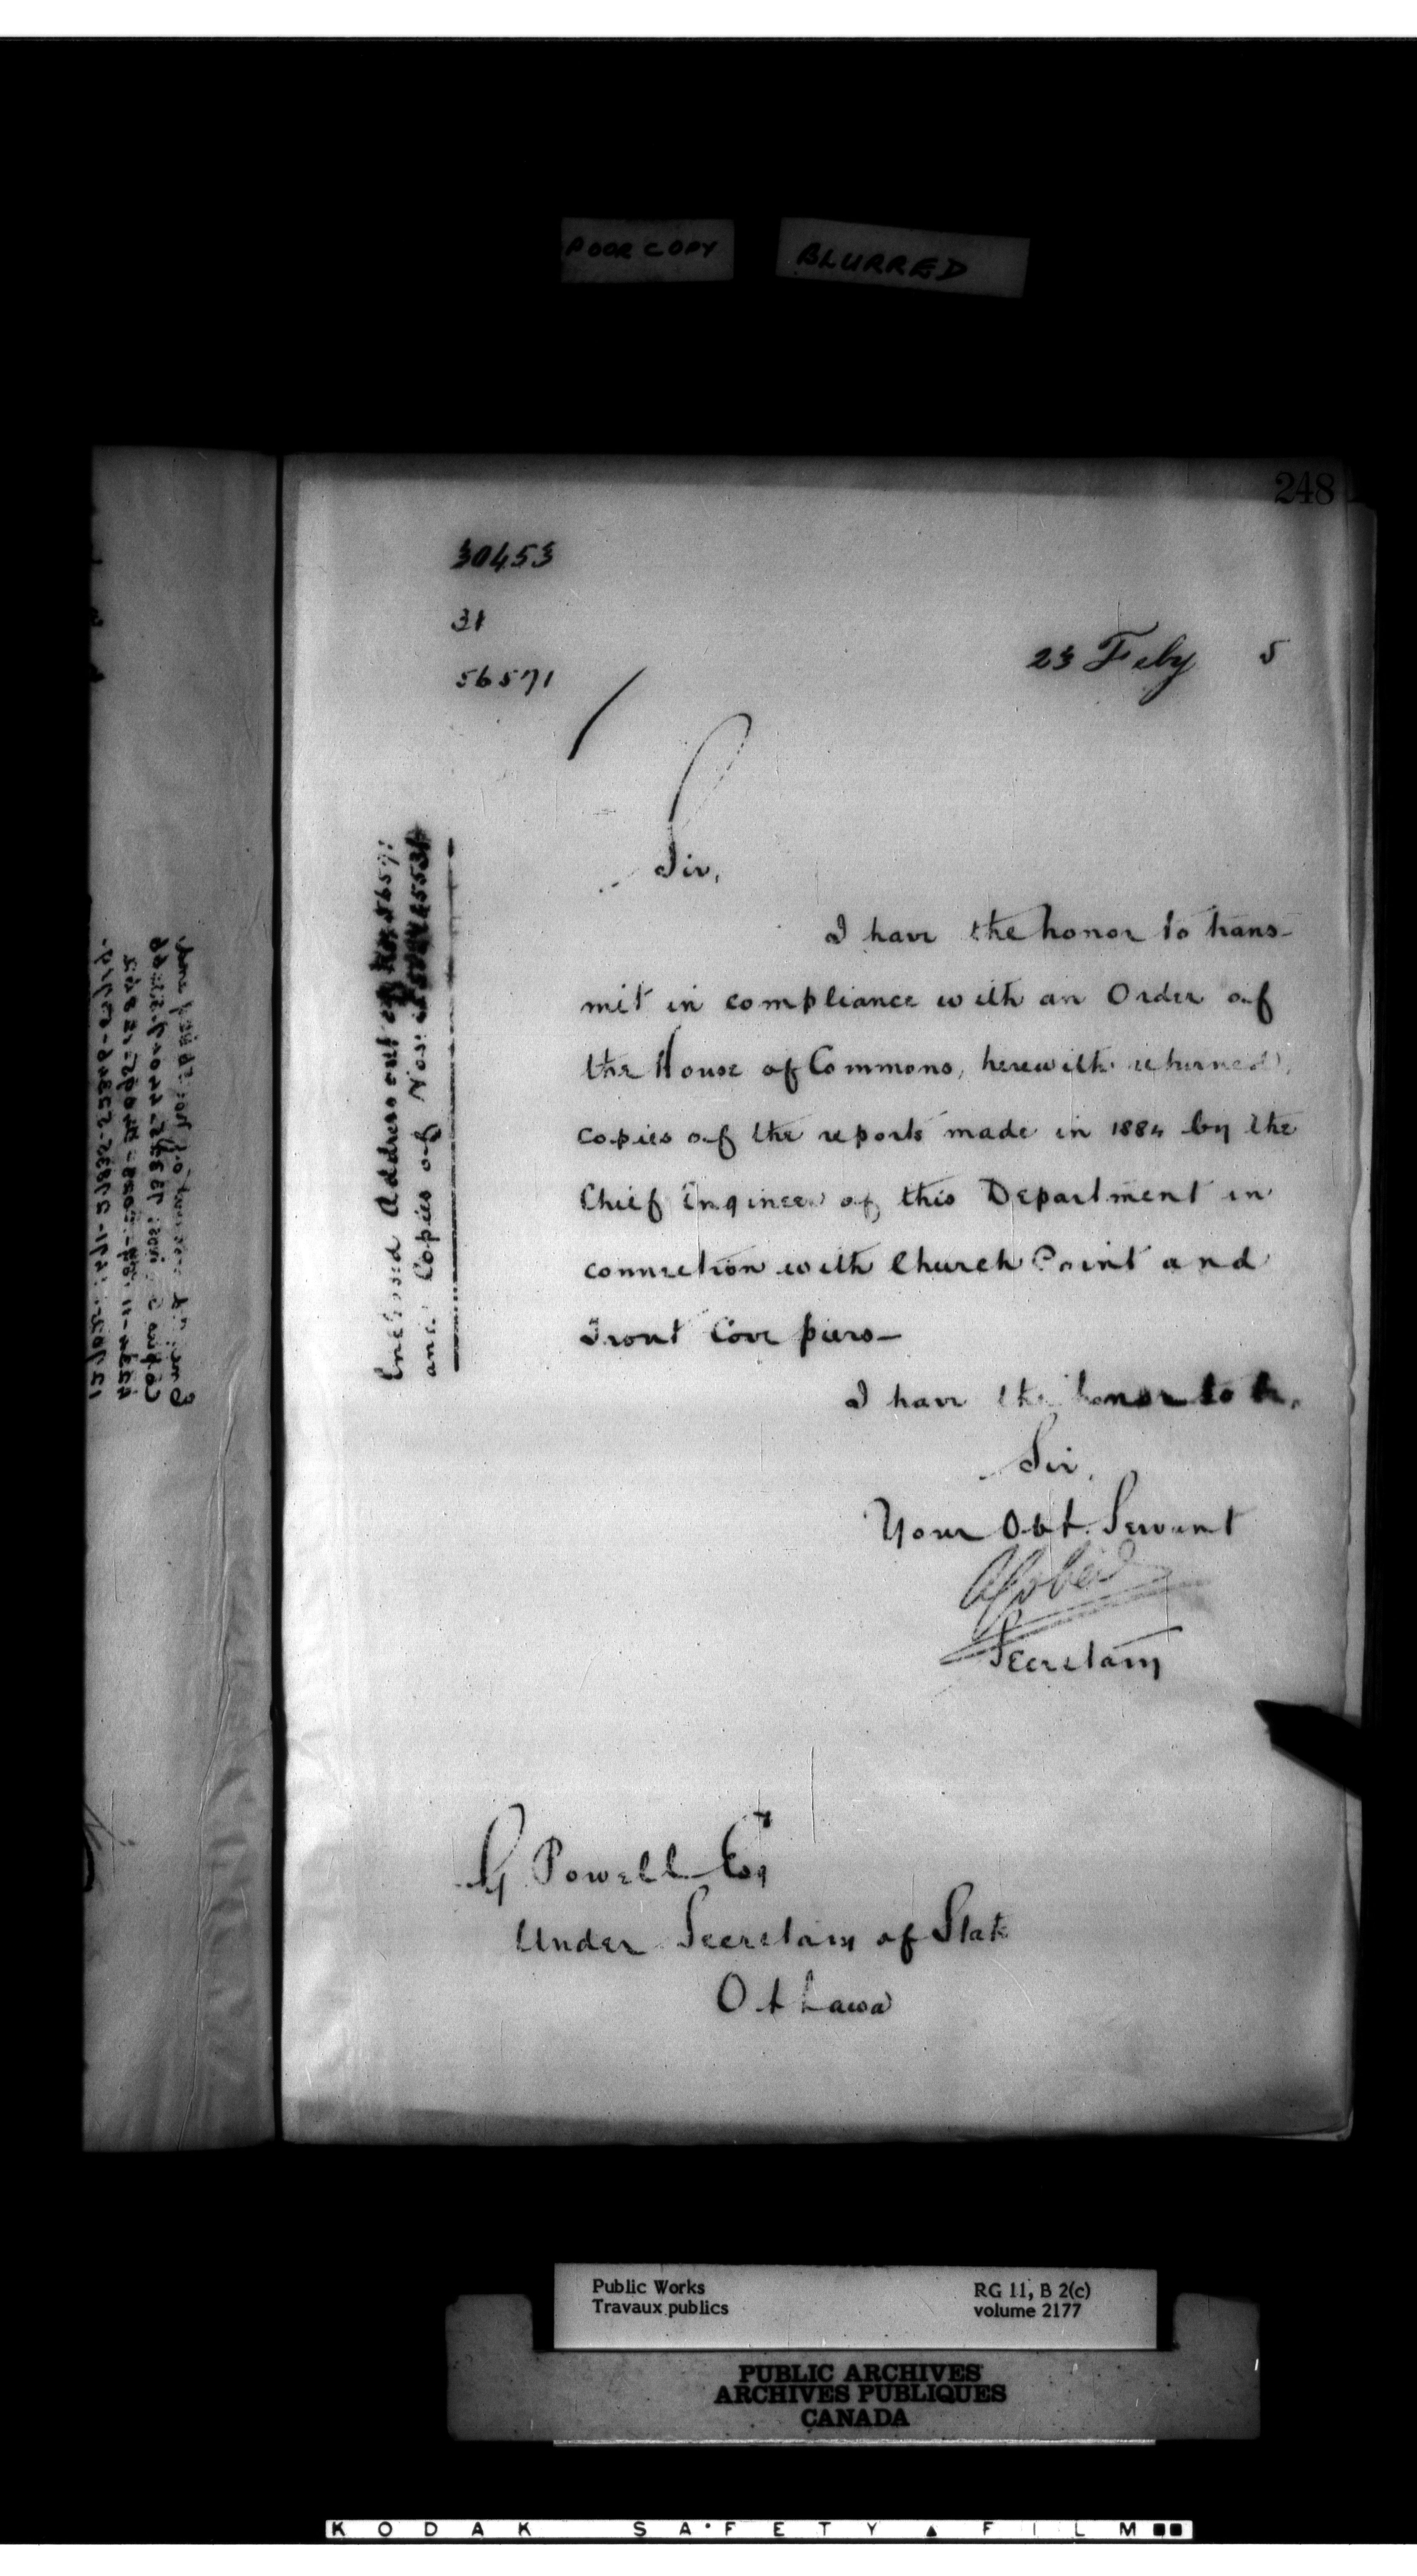 POOR COPY BLURRED
248
30453
31
56571
23 Feby 5
Sir,
I have the honor to trans-
mit in compliance with an Order of
the House of Commons, herewith returned,
copies of the reports made in 1884 by the
Chief Engineer of this Department in
connection with Church Point and
Trout Cove piers—
I have the honor to be,
Sir,
Your Obt. Servant
Secretary
G Powell Esq
Under Secretary of State
Ottawa
Enclosed Address out of 56571
and Copies of Nos:
Public Works
Travaux publics
RG 11, B 2(c)
volume 2177
PUBLIC ARCHIVES
ARCHIVES PUBLIQUES
CANADA
KODAK SAFETY FILM